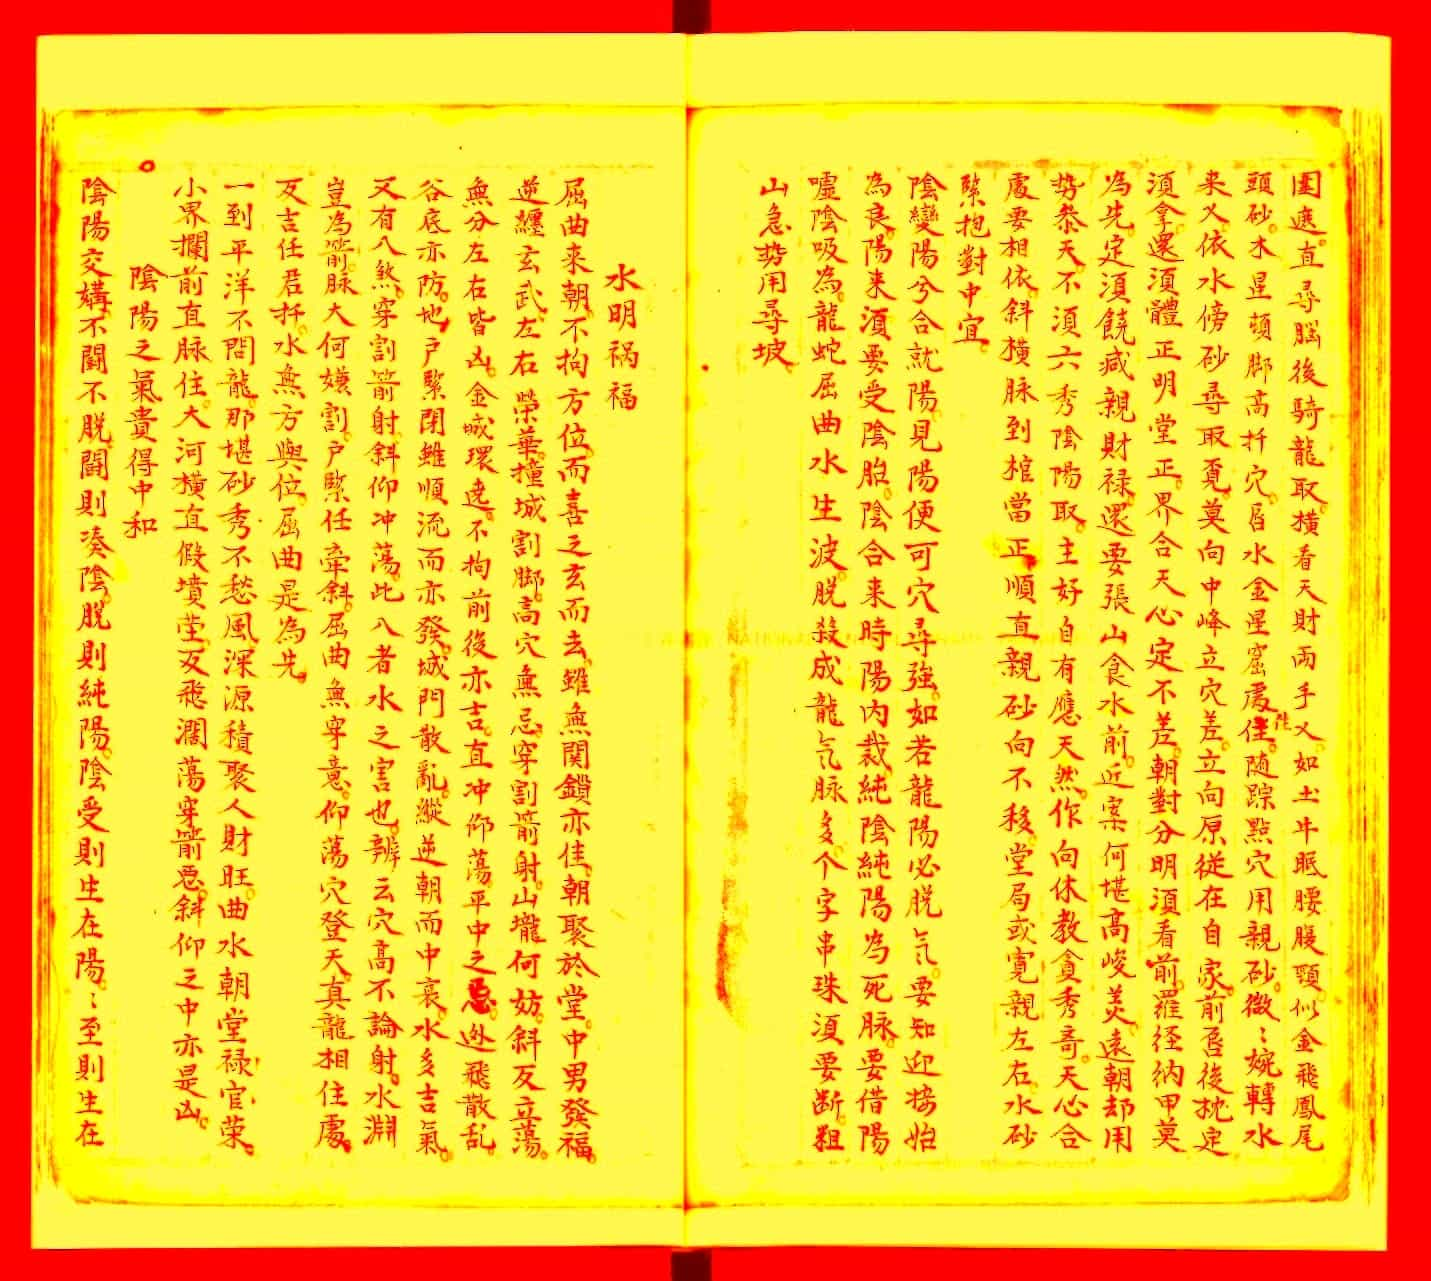 圍遮。直尋腦後騎龍取。橫看天財兩手乂。如土牛眠腰腹顋。似金飛鳳尾
頭砂。木星頓脚高扦穴。唇水金星窟處住。随踪㸃穴用親砂。微〻婉轉水
来乂。依水傍砂尋取覔。莫向中峰立穴差。立向原從在自家。前唇後枕定
湏拿。還湏體正明堂正。界合天心定不差。朝對分明湏看前。羅徑納甲莫
為先。定湏饒减親財禄。還要張山食水前。近案何堪高峻羙。遠朝却用
势叅天。不湏六秀陰陽取。主好自有應天然。作向休教貪秀竒。天心合
處要相依。斜橫脉到棺當正。順直親砂向不移。堂局或寬親左右。水砂
緊抱對中宜。
陰變陽兮合就陽。見陽便可穴尋強。如若龍陽必脱气。要知迎接始
為良。陽来湏要受陰胎。陰合来時陽内裁。純陰純陽為死脉。要借陽
噓陰吸為。龍蛇屈曲水生波。脱殺成龍气脉多。个字串珠湏要断。粗
山急势用尋坡。
水明祸福
屈曲来朝。不拘方位。而喜之玄而去。雖無関鎖亦佳。朝聚於堂。中男發福。
逆纏玄武。左右榮華。撞城割脚。高穴無忌。穿割箭射。山壠何妨。斜反立蕩。
無分左右皆凶。金城環遶。不拘前後亦吉。直冲仰蕩。平中之忌。迯飛散乱
谷底亦防。地户緊閉雖順流而亦發。城門散亂。縱逆朝而中衰。水多吉氣。
又有八煞。穿割箭射斜仰冲蕩。此八者水之害也。辨云穴高不論射。水淵
豈為箭。脉大何嫌割。户緊任牽斜。屈曲無穿意。仰蕩穴登天。真龍相住處。
反吉任君扦。水無方與位。屈曲是為先。
一到平洋不問龍。那堪砂秀不愁風。深源積聚人財旺。曲水朝堂禄官荣。
小界攔前直脉住。大河橫直假墳塋。反飛濶蕩穿箭忌。斜仰之中亦是凶。
陰陽之氣貴得中和
陰陽交媾。不鬪不脱。鬪則凑陰。脱則純陽。陰受則生在陽。〻至則生在